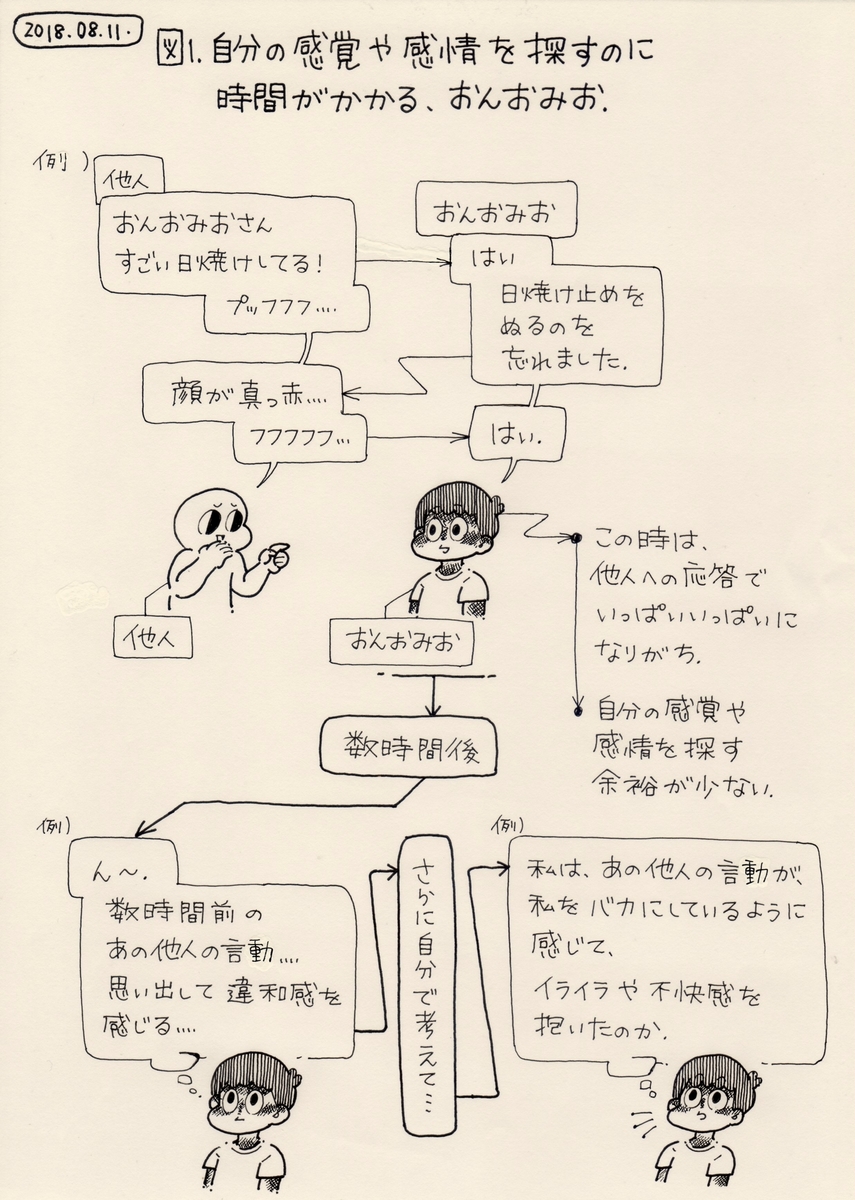 2018.08.11.
図1.自分の感覚や感情を探すのに
時間がかかる、おんおみお.
例)
他人
おんおみおさん
すごい日焼けしてる!
プッフフフ....
おんおみお
はい
日焼け止めを
ぬるのを
忘れました.
顔が真っ赤....
フフフフフ...
はい.
他人
おんおみお
この時は、
他人への応答で
いっぱいいっぱいに
なりがち.
自分の感覚や
感情を探す
余裕が少ない.
数時間後
例)
ん～.
数時間前の
あの他人の言動....
思い出して違和感を
感じる....
さらに自分で考えて...
例)
私は、あの他人の言動が、
私をバカにしているように
感じて、
イライラや不快感を
抱いたのか.